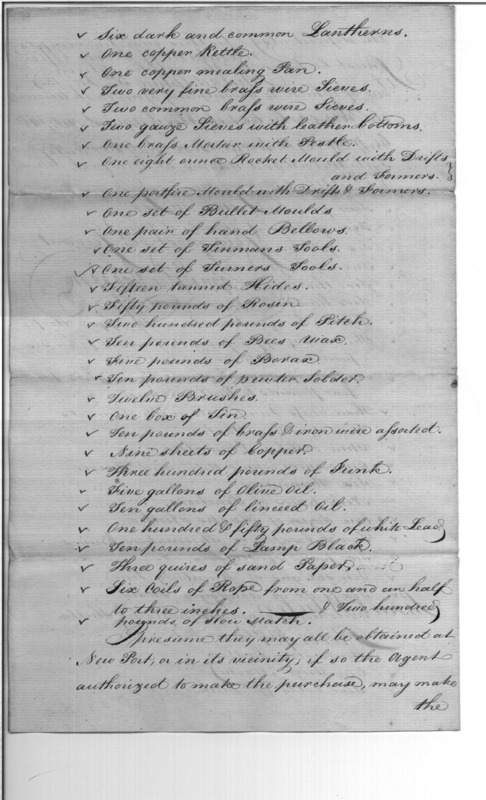 ✓ Six dark and common Lantherns.
✓ One copper Kettle.
✓ One copper mealing Pan.
✓ Two very fine brass wire Sieves.
✓ Two common brass wire Sieves.
✓ Two gauze Sieves with leather bottoms.
✓ One brass Mortar with Pestle.
✓ One eight ounce Rocket Mould with Drifts
and Formers.
✓ One portfire Mould with Drifts & Formers.
✓ One set of Bullet Moulds
✓ One pair of hand Bellows.
✓ One set of Tinmans Tools.
✓ One set of Turners Tools.
✓ Fifteen tanned Hides.
✓ Fifty pounds of Rosin
✓ Two hundred pounds of Pitch.
✓ Ten pounds of Bees Wax.
✓ Five pounds of Borax
✓ Ten pounds of pewter Solder.
✓ Twelve Brushes.
✓ One box of Tin
✓ Ten pounds of brass & iron wire assorted.
✓ Nine sheets of Copper.
✓ Three hundred pounds of Junk.
✓ Five gallons of Olive Oil.
✓ Ten gallons of linceed Oil.
✓ One hundred & fifty pounds of white Lead
✓ Ten pounds of Lamp Black.
✓ Three quires of sand Paper.
✓ Six Coils of Rope from one and an half
to three inches. & Two hundred
✓ pounds of slow Match.
presume they may all be obtained at
New Port, or in its vicinity; if so the Agent
authorized to make the purchase, may make
the